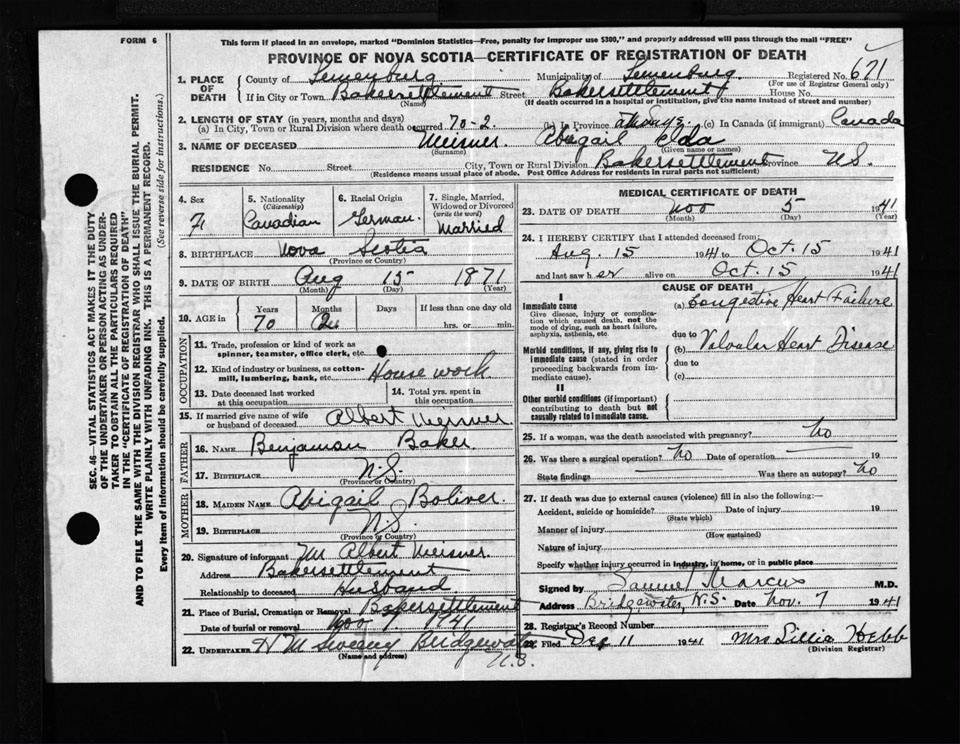 FORM 6
This form if placed in an envelope, marked "Dominion Statistics—Free, penalty for improper use $300," and properly addressed will pass through the mail "FREE"
PROVINCE OF NOVA SCOTIA—CERTIFICATE OF REGISTRATION OF DEATH
1. PLACE OF DEATH
County of Lunenburg Municipality of Lunenburg Registered No. 671
(For use of Registrar General only)
If in City or Town Bakersettlement Street Bakersettlement House No.
(Name) (If death occurred in a hospital or institution, give name instead of street and number)
2. LENGTH OF STAY (in years, months and days)
(a) In City, Town or Rural Division where death occurred 70-2 (b) In Province (c) In Canada (if immigrant) Canada
3. NAME OF DECEASED Meisner Abagail Elda
(Surname) (Given name or names)
RESIDENCE No. Street City, Town or Rural Division Bakersettlement Province N.S.
(Residence means usual place of abode. Post Office Address for residents in rural parts not sufficient)
4. Sex F
5. Nationality (Citizenship) Canadian
6. Racial Origin German
7. Single, Married, Widowed or Divorced (write the word) Married
8. BIRTHPLACE Nova Scotia
(Province or Country)
9. DATE OF BIRTH Aug 15 1871
(Month) (Day) (Year)
10. AGE in Years Months Days If less than one day old
70 hrs. or min.
OCCUPATION
11. Trade, profession or kind of work as spinner, teamster, office clerk, etc.
12. Kind of industry or business, as cotton-mill, lumbering, bank, etc. House work
13. Date deceased last worked at this occupation
14. Total yrs. spent in this occupation
15. If married give name of wife or husband of deceased Albert Meisner
FATHER
16. NAME Benjaman Baker
17. BIRTHPLACE N.S.
(Province or Country)
MOTHER
18. MAIDEN NAME Abigail Boliver
19. BIRTHPLACE N.S.
(Province or Country)
20. Signature of informant Mr Albert Meisner
Address Bakersettlement
Relationship to deceased Husband
21. Place of Burial, Cremation or Removal Bakersettlement
Date of burial or removal Nov 7 1941
22. UNDERTAKER H M Sweeny Bridgewater N.S.
(Name and address)
MEDICAL CERTIFICATE OF DEATH
23. DATE OF DEATH Nov 5 1941
(Month) (Day) (Year)
24. I HEREBY CERTIFY that I attended deceased from:
Aug. 15 1941 to Oct. 15 1941
and last saw her alive on Oct. 15 1941
CAUSE OF DEATH
I
Immediate cause
Give disease, injury or complication which caused death, not the mode of dying, such as heart failure, asphyxia, asthenia, etc.
(a) Congestive Heart Failure
due to
Morbid conditions, if any, giving rise to immediate cause (stated in order proceeding backwards from immediate cause).
(b) Valvular Heart Disease
due to
(c)
II
Other morbid conditions (if important) contributing to death but not causally related to immediate cause.
25. If a woman, was the death associated with pregnancy? No
26. Was there a surgical operation? No Date of operation 19
State findings Was there an autopsy? No
27. If death was due to external causes (violence) fill in also the following:—
Accident, suicide or homicide? Date of injury 19
(State which)
Manner of injury
(How sustained)
Nature of injury
Specify whether injury occurred in industry, in home, or in public place
Signed by Samuel Marcus M.D.
Address Bridgewater, N.S. Date Nov. 7 1941
28. Registrar's Record Number
29. Filed Dec 11 1941 Mrs Lillia Hebb
(Division Registrar)
SEC. 46—VITAL STATISTICS ACT MAKES IT THE DUTY
OF THE UNDERTAKER OR PERSON ACTING AS UNDER-
TAKER TO OBTAIN ALL THE PARTICULARS REQUIRED
IN THE "CERTIFICATE OF REGISTRATION OF DEATH"
AND TO FILE THE SAME WITH THE DIVISION REGISTRAR WHO SHALL ISSUE THE BURIAL PERMIT.
WRITE PLAINLY WITH UNFADING INK. THIS IS A PERMANENT RECORD.
Every item of information should be carefully supplied. (See reverse side for instructions.)